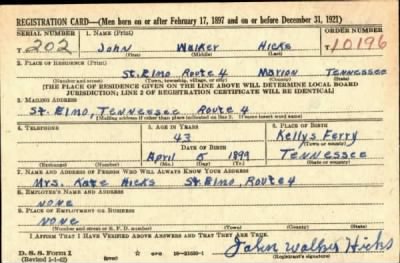 REGISTRATION CARD—(Men born on or after February 17, 1897 and on or before December 31, 1921)
SERIAL NUMBER 1. NAME (Print) ORDER NUMBER
T 202 John Walker Hicks T 10196
(First) (Middle) (Last)
2. PLACE OF RESIDENCE (Print)
St. Elmo Route 4 Marion Tennessee
(Number and street) (Town, township, village, or city) (County) (State)
[THE PLACE OF RESIDENCE GIVEN ON THE LINE ABOVE WILL DETERMINE LOCAL BOARD
JURISDICTION; LINE 2 OF REGISTRATION CERTIFICATE WILL BE IDENTICAL]
3. MAILING ADDRESS
St. Elmo, Tennessee Route 4
[Mailing address if other than place indicated on line 2. If same insert word same]
4. TELEPHONE 5. AGE IN YEARS 6. PLACE OF BIRTH
43 Kellys Ferry
DATE OF BIRTH (Town or county)
April 5 1899 Tennessee
(Exchange) (Number) (Mo.) (Day) (Yr.) (State or country)
7. NAME AND ADDRESS OF PERSON WHO WILL ALWAYS KNOW YOUR ADDRESS
Mrs. Kate Hicks St. Elmo, Route 4
8. EMPLOYER'S NAME AND ADDRESS
None
9. PLACE OF EMPLOYMENT OR BUSINESS
None
(Number and street or R. F. D. number) (Town) (County) (State)
I AFFIRM THAT I HAVE VERIFIED ABOVE ANSWERS AND THAT THEY ARE TRUE.
D. S. S. Form 1 (over) John Walker Hicks
(Revised 4-1-42) (Registrant's signature)